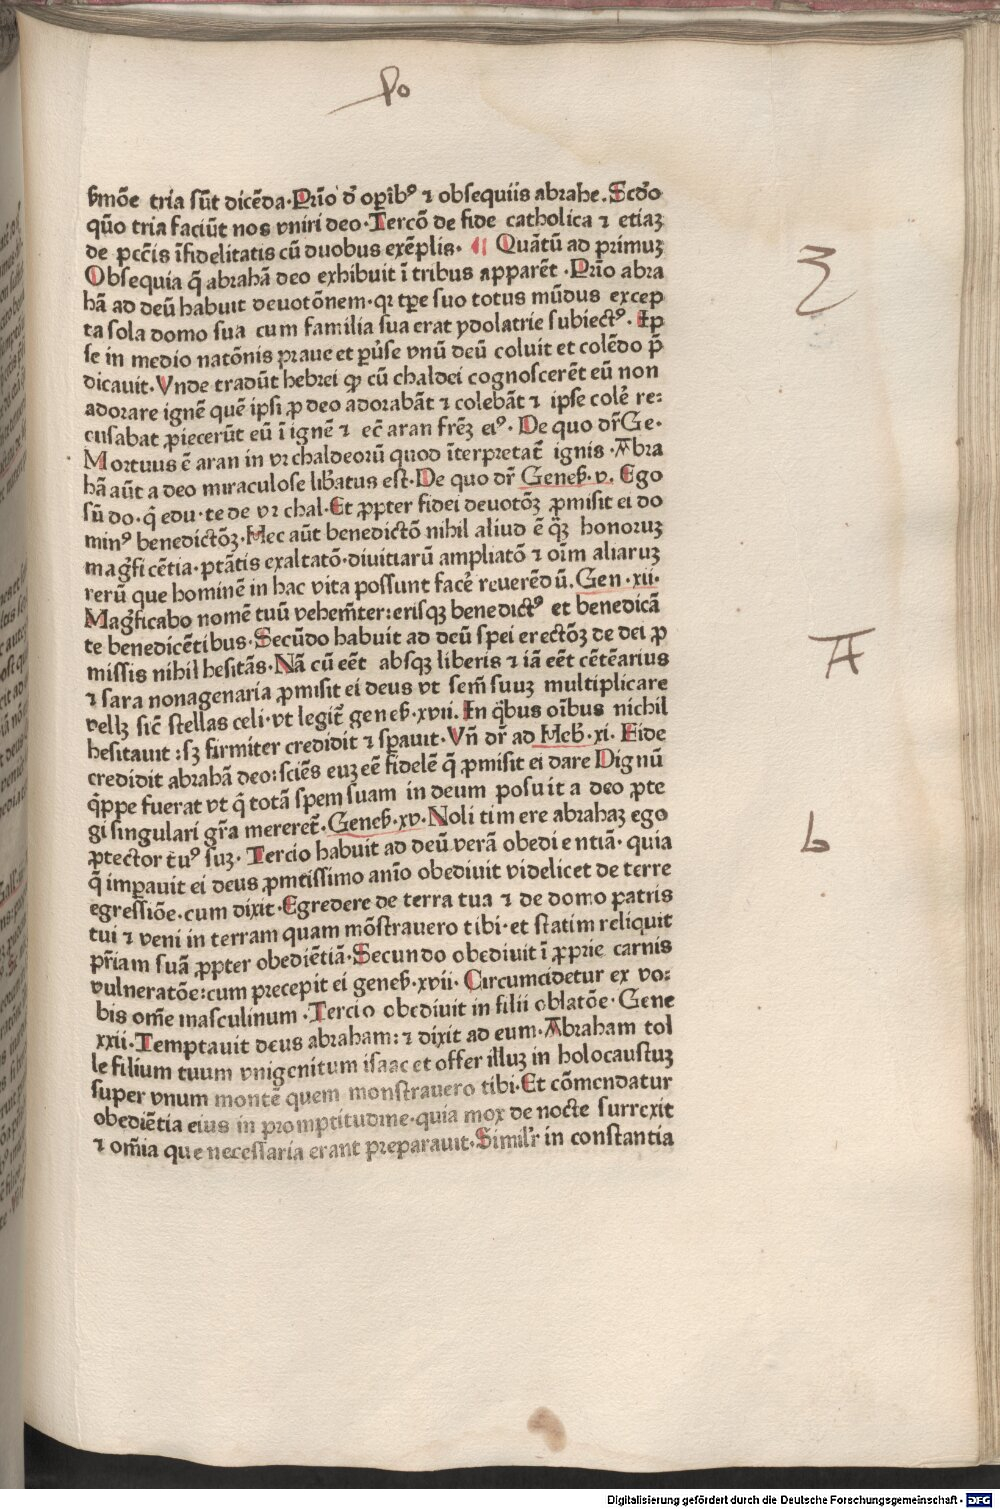 Po
ẜmōe tria sūt dicēda. Prīo d̄ oꝑibꝰ ⁊ obsequiis abrahe. Scd̄o
quō tria faciūt nos vniri deo. Tercō de fide catholica ⁊ etiaꝫ
de pccīs īfidelitatis cū duobus exēplis. ¶ Quātū ad primuꝫ
Obsequia q̄ abrahā deo exhibuit ī tribus apparēt. Prīo abra
hā ad deū habuit deuotōnem. qꝛ tꝑe suo totus mūdus excep
ta sola domo sua cum familia sua erat ydolatrie subiectꝰ. Ip
se in medio natōnis praue et ꝑuse vnū deū coluit et colēdo p̄
dicauit. Vnde tradūt hebrei ꝙ cū chaldei cognoscerēt eū non
adorare ignē quē ipsi ꝓ deo adorabāt ⁊ colebāt ⁊ ipse coleꝛ̄ re⸗
cusabat ꝓiecerūt eū ī ignē ⁊ ec̄ aran frēꝫ eiꝰ. De quo dr̄ Ge.
Mortuus ē aran in vr chaldeorū quod īterpretat̄ ignis. Abra
hā aūt a deo miraculose lib̄atus est. De quo dr̄ Geneẜ. v. Ego
sū do. q̄ edu. te de vr chal. Et ꝓpter fidei deuotōꝫ ꝓmisit ei do
minꝰ benedictōꝫ. Hec aūt benedictō nihil aliud ē q̄ꝫ honoruꝫ
mag̓ficētia. ptātis exaltatō. diuitiarū ampliatō ⁊ oīm aliaruꝫ
rerū que hominē in hac vita possunt faceꝛ̄ reuerēdū. Gen. xii.
Mag̓ficabo nomē tuū vehem̄ter: erisqꝫ benedictꝰ et benedicā
te benedicētibus. Secūdo habuit ad deū spei erectōꝫ de dei ꝓ
missis nihil hesitās. Nā cū eēt absqꝫ liberis ⁊ iā eēt cētēarius
⁊ sara nonagenaria ꝓmisit ei deus vt sem̄ suuꝫ multiplicare
vellꝫ sic̄ stellas celi. vt legit̄ geneẜ. xvii. In q̄bus oībus nichil
hesitauit: sꝫ firmiter credidit ⁊ sꝑauit. Vn̄ dr̄ ad Heb̄. xi. Fide
credidit abrahā deo: sciēs euꝫ eē fidelē q̄ ꝓmisit ei dare Dignū
q̄ppe fuerat vt q̄ totā spem suam in deum posuit a deo ꝓte
gi singulari gr̄a mereret̄. Geneẜ. xv. Noli timere abrahaꝫ ego
ꝓtector tuꝰ suꝫ. Tercio habuit ad deū verā obedientiā. quia
q̄ imꝑauit ei deus ꝓmtissimo anīo obediuit videlicet de terre
egressiōe. cum dixit. Egredere de terra tua ⁊ de domo patris
tui ⁊ veni in terram quam mōstrauero tibi. et statim reliquit
pr̄iam suā ꝓpter obediētiā. Secundo obediuit ī ꝓprie carnis
vulneratōe: cum precepit ei geneẜ. xvii. Circumcidetur ex vo⸗
bis om̄e masculinum. Tercio obediuit in filii oblatōe. Gene
xxii. Temptauit deus abraham: ⁊ dixit ad eum. Abraham tol
le filium tuum vnigenitum isaac et offer illuꝫ in holocaustuꝫ
super vnum montē quem monstrauero tibi. Et cōmendatur
obediētia eius in promptitudine. quia mox de nocte surrexit
⁊ om̄ia que necessaria erant preparauit. Simil'r in constantia
A
b
Digitalisierung gefördert durch die Deutsche Forschungsgemeinschaft - DFG